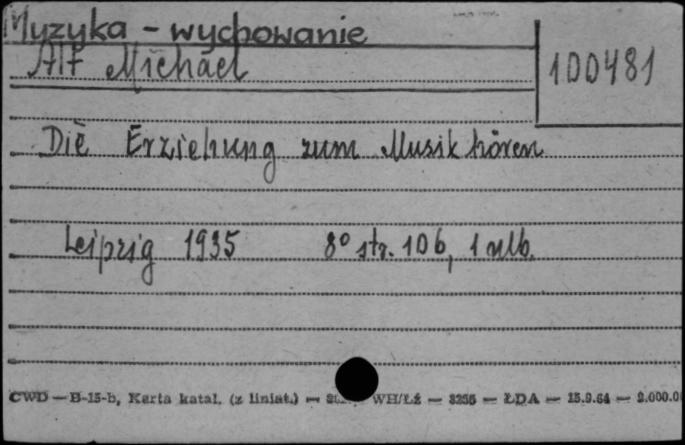 Muzyka - wychowanie
Alt Michael
100481
Die Erziehung zum Musik hören
Leipzig 1935 8° str. 106, 1 nlb.
CWD — B-15-b, Karta katal. (z liniat.) — WH/Łż — 3255 — ŁDA — 15.9.64 —